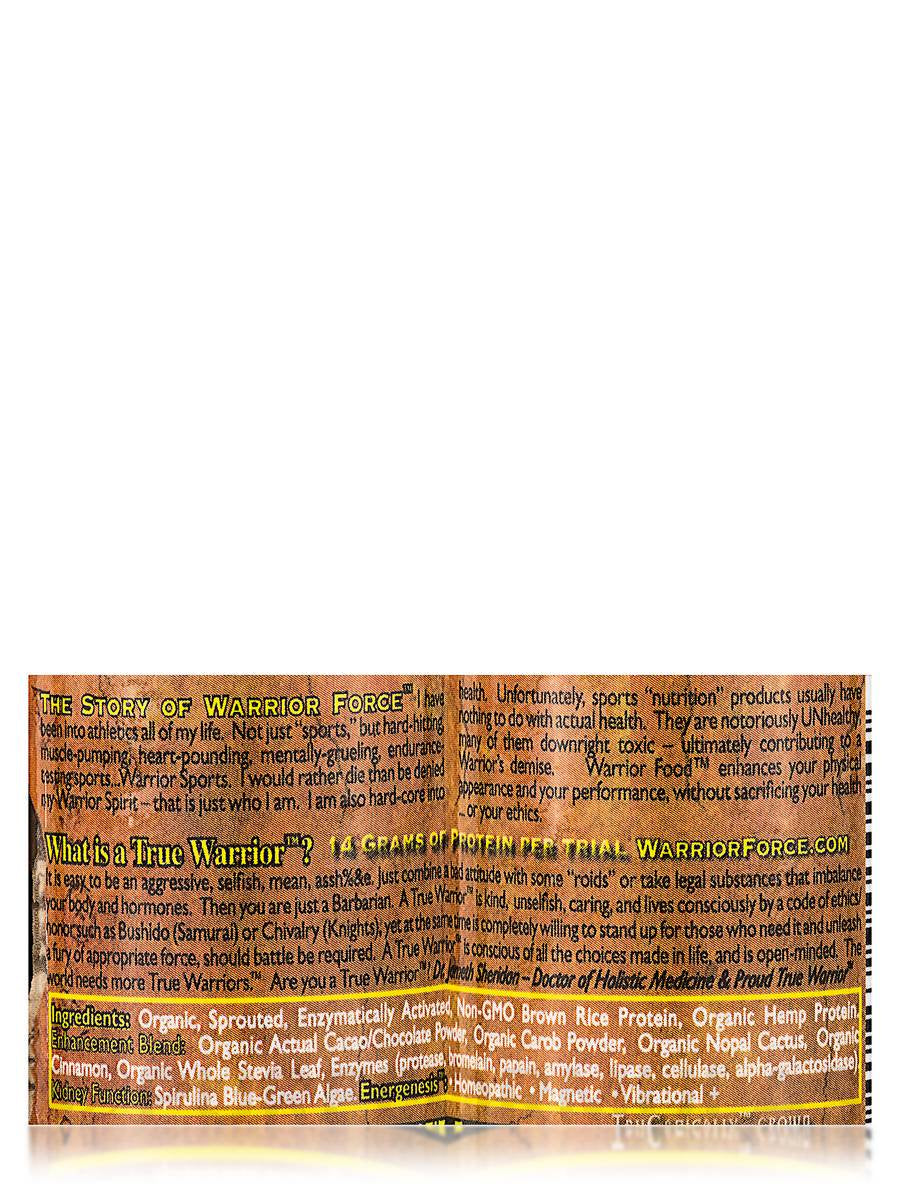 THE STORY OF WARRIOR FORCE™ I have
been into athletics all of my life. Not just "sports," but hard-hitting
muscle-pumping, heart-pounding, mentally-grueling, endurance-
testing sports...Warrior Sports. I would rather die than be denied
my Warrior Spirit – that is just who I am. I am also hard-core into
health. Unfortunately, sports "nutrition" products usually have
nothing to do with actual health. They are notoriously UNhealthy,
many of them downright toxic – ultimately contributing to a
Warrior's demise. Warrior Food™ enhances your physical
appearance and your performance, without sacrificing your health
... or your ethics.
What is a True Warrior™? 14 GRAMS OF PROTEIN PER TRIAL WARRIORFORCE.COM
It is easy to be an aggressive, selfish, mean, assh%&e. Just combine a bad attitude with some "roids" or take legal substances that imbalance
your body and hormones. Then you are just a Barbarian. A True Warrior™ is kind, unselfish, caring, and lives consciously by a code of ethics/
honor such as Bushido (Samurai) or Chivalry (Knights), yet at the same time is completely willing to stand up for those who need it and unleash
a fury of appropriate force, should battle be required. A True Warrior™ is conscious of all the choices made in life, and is open-minded. The
world needs more True Warriors.™ Are you a True Warrior™? Sheridan – Doctor of Holistic Medicine & Proud True Warrior™
Ingredients: Organic, Sprouted, Enzymatically Activated, Non-GMO Brown Rice Protein, Organic Hemp Protein,
Enhancement Blend: Organic Actual Cacao/Chocolate Powder, Organic Carob Powder, Organic Nopal Cactus, Organic
Cinnamon, Organic Whole Stevia Leaf, Enzymes (protease, bromelain, papain, amylase, lipase, cellulase, alpha-galactosidase)
Kidney Function: Spirulina Blue-Green Algae. Energenesis™: • Homeopathic • Magnetic • Vibrational +